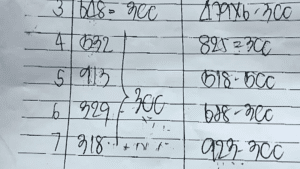 3 648 = 300 479x6-300
4 632 825=300
5 913 518-500
6 329 -300 628-300
7 318 923-300